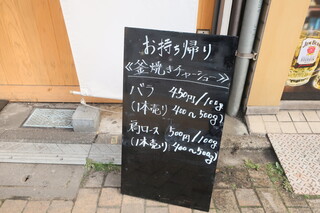 お持ち帰り
《釜焼きチャーシュー》
バラ 450円/100g
(1本売り 400〜500g)
肩ロース 500円/100g
(1本売り 400〜500g)